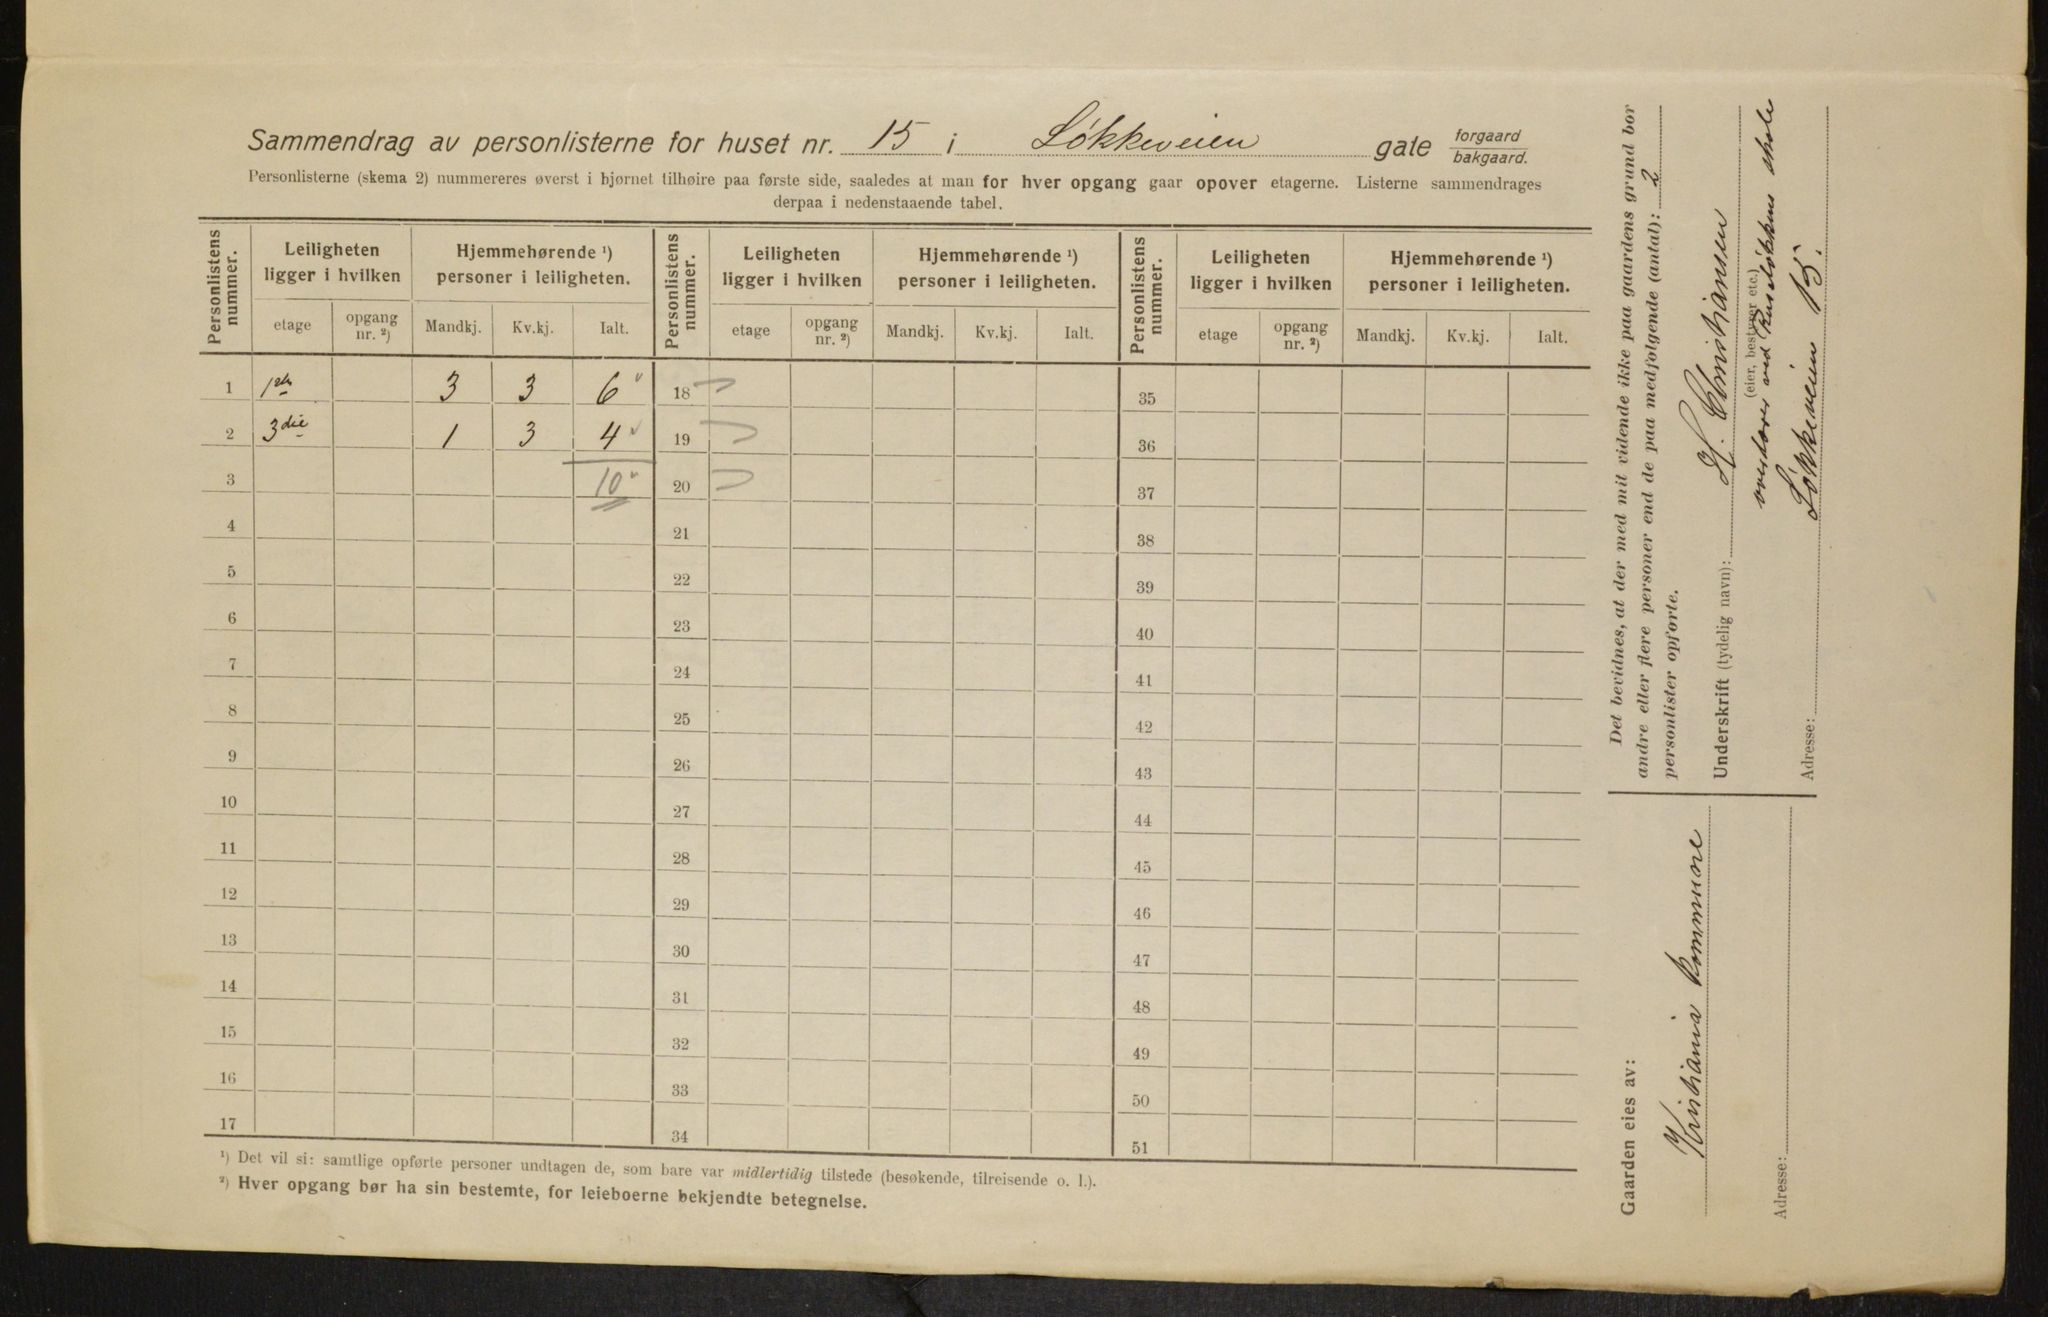 Sammendrag av personlisterne for huset nr. 15 i Løkkeveien gate forgaard
bakgaard.
Personlisterne (skema 2) nummereres øverst i hjørnet tilhøire paa første side, saaledes at man for hver opgang gaar opover etagerne. Listerne sammendrages
derpaa i nedenstaaende tabel.
Personlistens nummer. Leiligheten ligger i hvilken Hjemmehørende ¹) personer i leiligheten. Personlistens nummer. Leiligheten ligger i hvilken Hjemmehørende ¹) personer i leiligheten. Personlistens nummer. Leiligheten ligger i hvilken Hjemmehørende ¹) personer i leiligheten.
etage opgang nr. ²) Mandkj. Kv.kj. Ialt. etage opgang nr. ²) Mandkj. Kv.kj. Ialt. etage opgang nr. ²) Mandkj. Kv.kj. Ialt.
1 1ste 3 3 6 18 35
2 3die 1 3 4 19 36
3 10 20 37
4 21 38
5 22 39
6 23 40
7 24 41
8 25 42
9 26 43
10 27 44
11 28 45
12 29 46
13 30 47
14 31 48
15 32 49
16 33 50
17 34 51
¹) Det vil si: samtlige opførte personer undtagen de, som bare var midlertidig tilstede (besøkende, tilreisende o. l.).
²) Hver opgang bør ha sin bestemte, for leieboerne bekjendte betegnelse.
Det bevidnes, at der med mit vidende ikke paa gaardens grund bor
andre eller flere personer end de paa medfølgende (antal): 2
personlister opførte.
Underskrift (tydelig navn): H. Christiansen
(eier, bestyrer etc.)
overlærer ved Ruseløkkens skole
Adresse: Løkkeveien 15.
Gaarden eies av:
Kristiania kommune
Adresse: